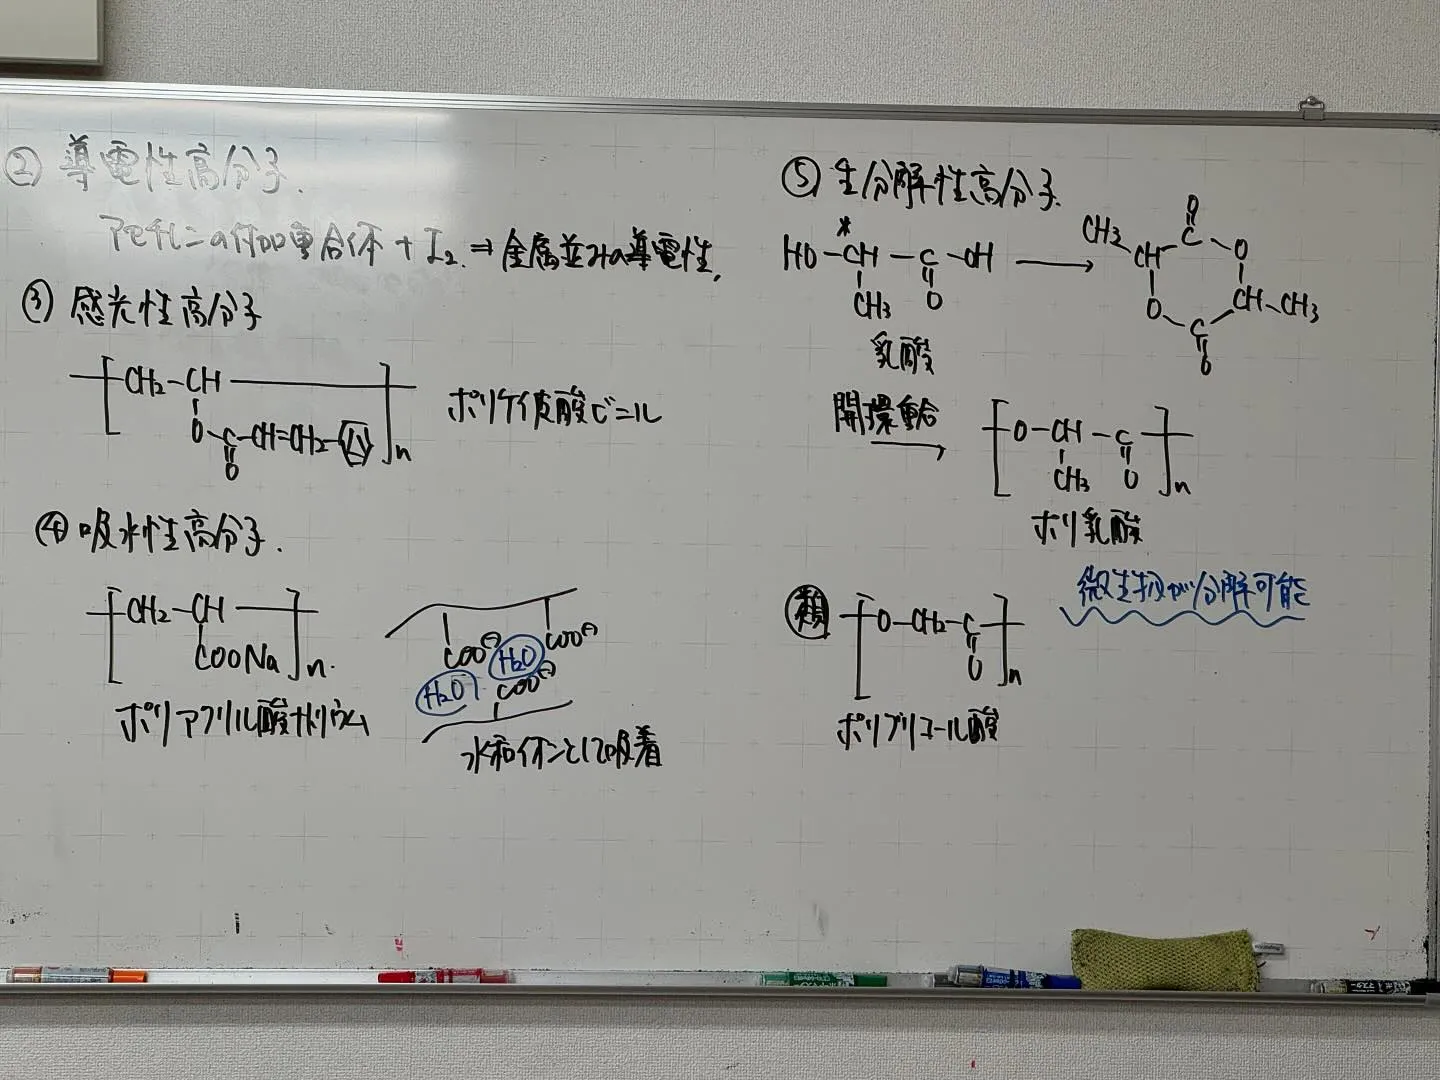 ② 導電性高分子.
アセチレンの付加重合体 + I₂. ⇒ 金属並みの導電性.
③ 感光性高分子
[CH₂-CH]n
O-C-CH=CH₂-
O
ポリケイ皮酸ビニル
④ 吸水性高分子.
[CH₂-CH]n.
COONa
ポリアクリル酸ナトリウム
COO⊖ H₂O COO⊖
H₂O COO⊖
水和イオンとして吸着
⑤ 生分解性高分子.
HO-*CH-C-OH →
CH₃ O
乳酸
O
CH₃-CH-C-O
O-C-CH-CH₃
O
開環重合 →
[O-CH-C]n
CH₃ O
ポリ乳酸
微生物が分解可能
類 [O-CH₂-C]n
O
ポリグリコール酸